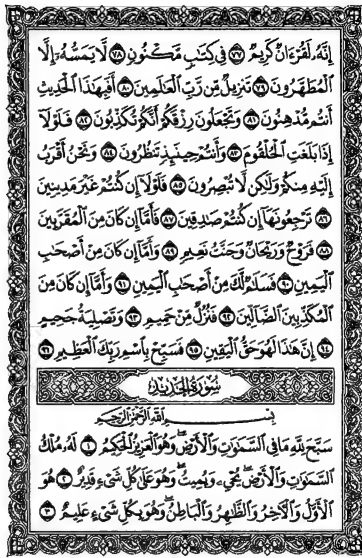 إِنَّهُۥ لَقُرۡءَانٞ كَرِيمٞ ٧٧ فِي كِتَٰبٖ مَّكۡنُونٖ ٧٨ لَّا يَمَسُّهُۥٓ إِلَّا
ٱلۡمُطَهَّرُونَ ٧٩ تَنزِيلٞ مِّن رَّبِّ ٱلۡعَٰلَمِينَ ٨٠ أَفَبِهَٰذَا ٱلۡحَدِيثِ
أَنتُم مُّدۡهِنُونَ ٨١ وَتَجۡعَلُونَ رِزۡقَكُمۡ أَنَّكُمۡ تُكَذِّبُونَ ٨٢ فَلَوۡلَآ
إِذَا بَلَغَتِ ٱلۡحُلۡقُومَ ٨٣ وَأَنتُمۡ حِينَئِذٖ تَنظُرُونَ ٨٤ وَنَحۡنُ أَقۡرَبُ
إِلَيۡهِ مِنكُمۡ وَلَٰكِن لَّا تُبۡصِرُونَ ٨٥ فَلَوۡلَآ إِن كُنتُمۡ غَيۡرَ مَدِينِينَ
٨٦ تَرۡجِعُونَهَآ إِن كُنتُمۡ صَٰدِقِينَ ٨٧ فَأَمَّآ إِن كَانَ مِنَ ٱلۡمُقَرَّبِينَ
٨٨ فَرَوۡحٞ وَرَيۡحَانٞ وَجَنَّتُ نَعِيمٖ ٨٩ وَأَمَّآ إِن كَانَ مِنۡ أَصۡحَٰبِ
ٱلۡيَمِينِ ٩٠ فَسَلَٰمٞ لَّكَ مِنۡ أَصۡحَٰبِ ٱلۡيَمِينِ ٩١ وَأَمَّآ إِن كَانَ مِنَ
ٱلۡمُكَذِّبِينَ ٱلضَّآلِّينَ ٩٢ فَنُزُلٞ مِّنۡ حَمِيمٖ ٩٣ وَتَصۡلِيَةُ جَحِيمٍ
٩٤ إِنَّ هَٰذَا لَهُوَ حَقُّ ٱلۡيَقِينِ ٩٥ فَسَبِّحۡ بِٱسۡمِ رَبِّكَ ٱلۡعَظِيمِ ٩٦
سُورَةُ الحَدِيدِ
بِسۡمِ ٱللَّهِ ٱلرَّحۡمَٰنِ ٱلرَّحِيمِ
سَبَّحَ لِلَّهِ مَا فِي ٱلسَّمَٰوَٰتِ وَٱلۡأَرۡضِۖ وَهُوَ ٱلۡعَزِيزُ ٱلۡحَكِيمُ ١ لَهُۥ مُلۡكُ
ٱلسَّمَٰوَٰتِ وَٱلۡأَرۡضِۖ يُحۡيِۦ وَيُمِيتُۖ وَهُوَ عَلَىٰ كُلِّ شَيۡءٖ قَدِيرٌ ٢ هُوَ
ٱلۡأَوَّلُ وَٱلۡأٓخِرُ وَٱلظَّٰهِرُ وَٱلۡبَاطِنُۖ وَهُوَ بِكُلِّ شَيۡءٍ عَلِيمٌ ٣